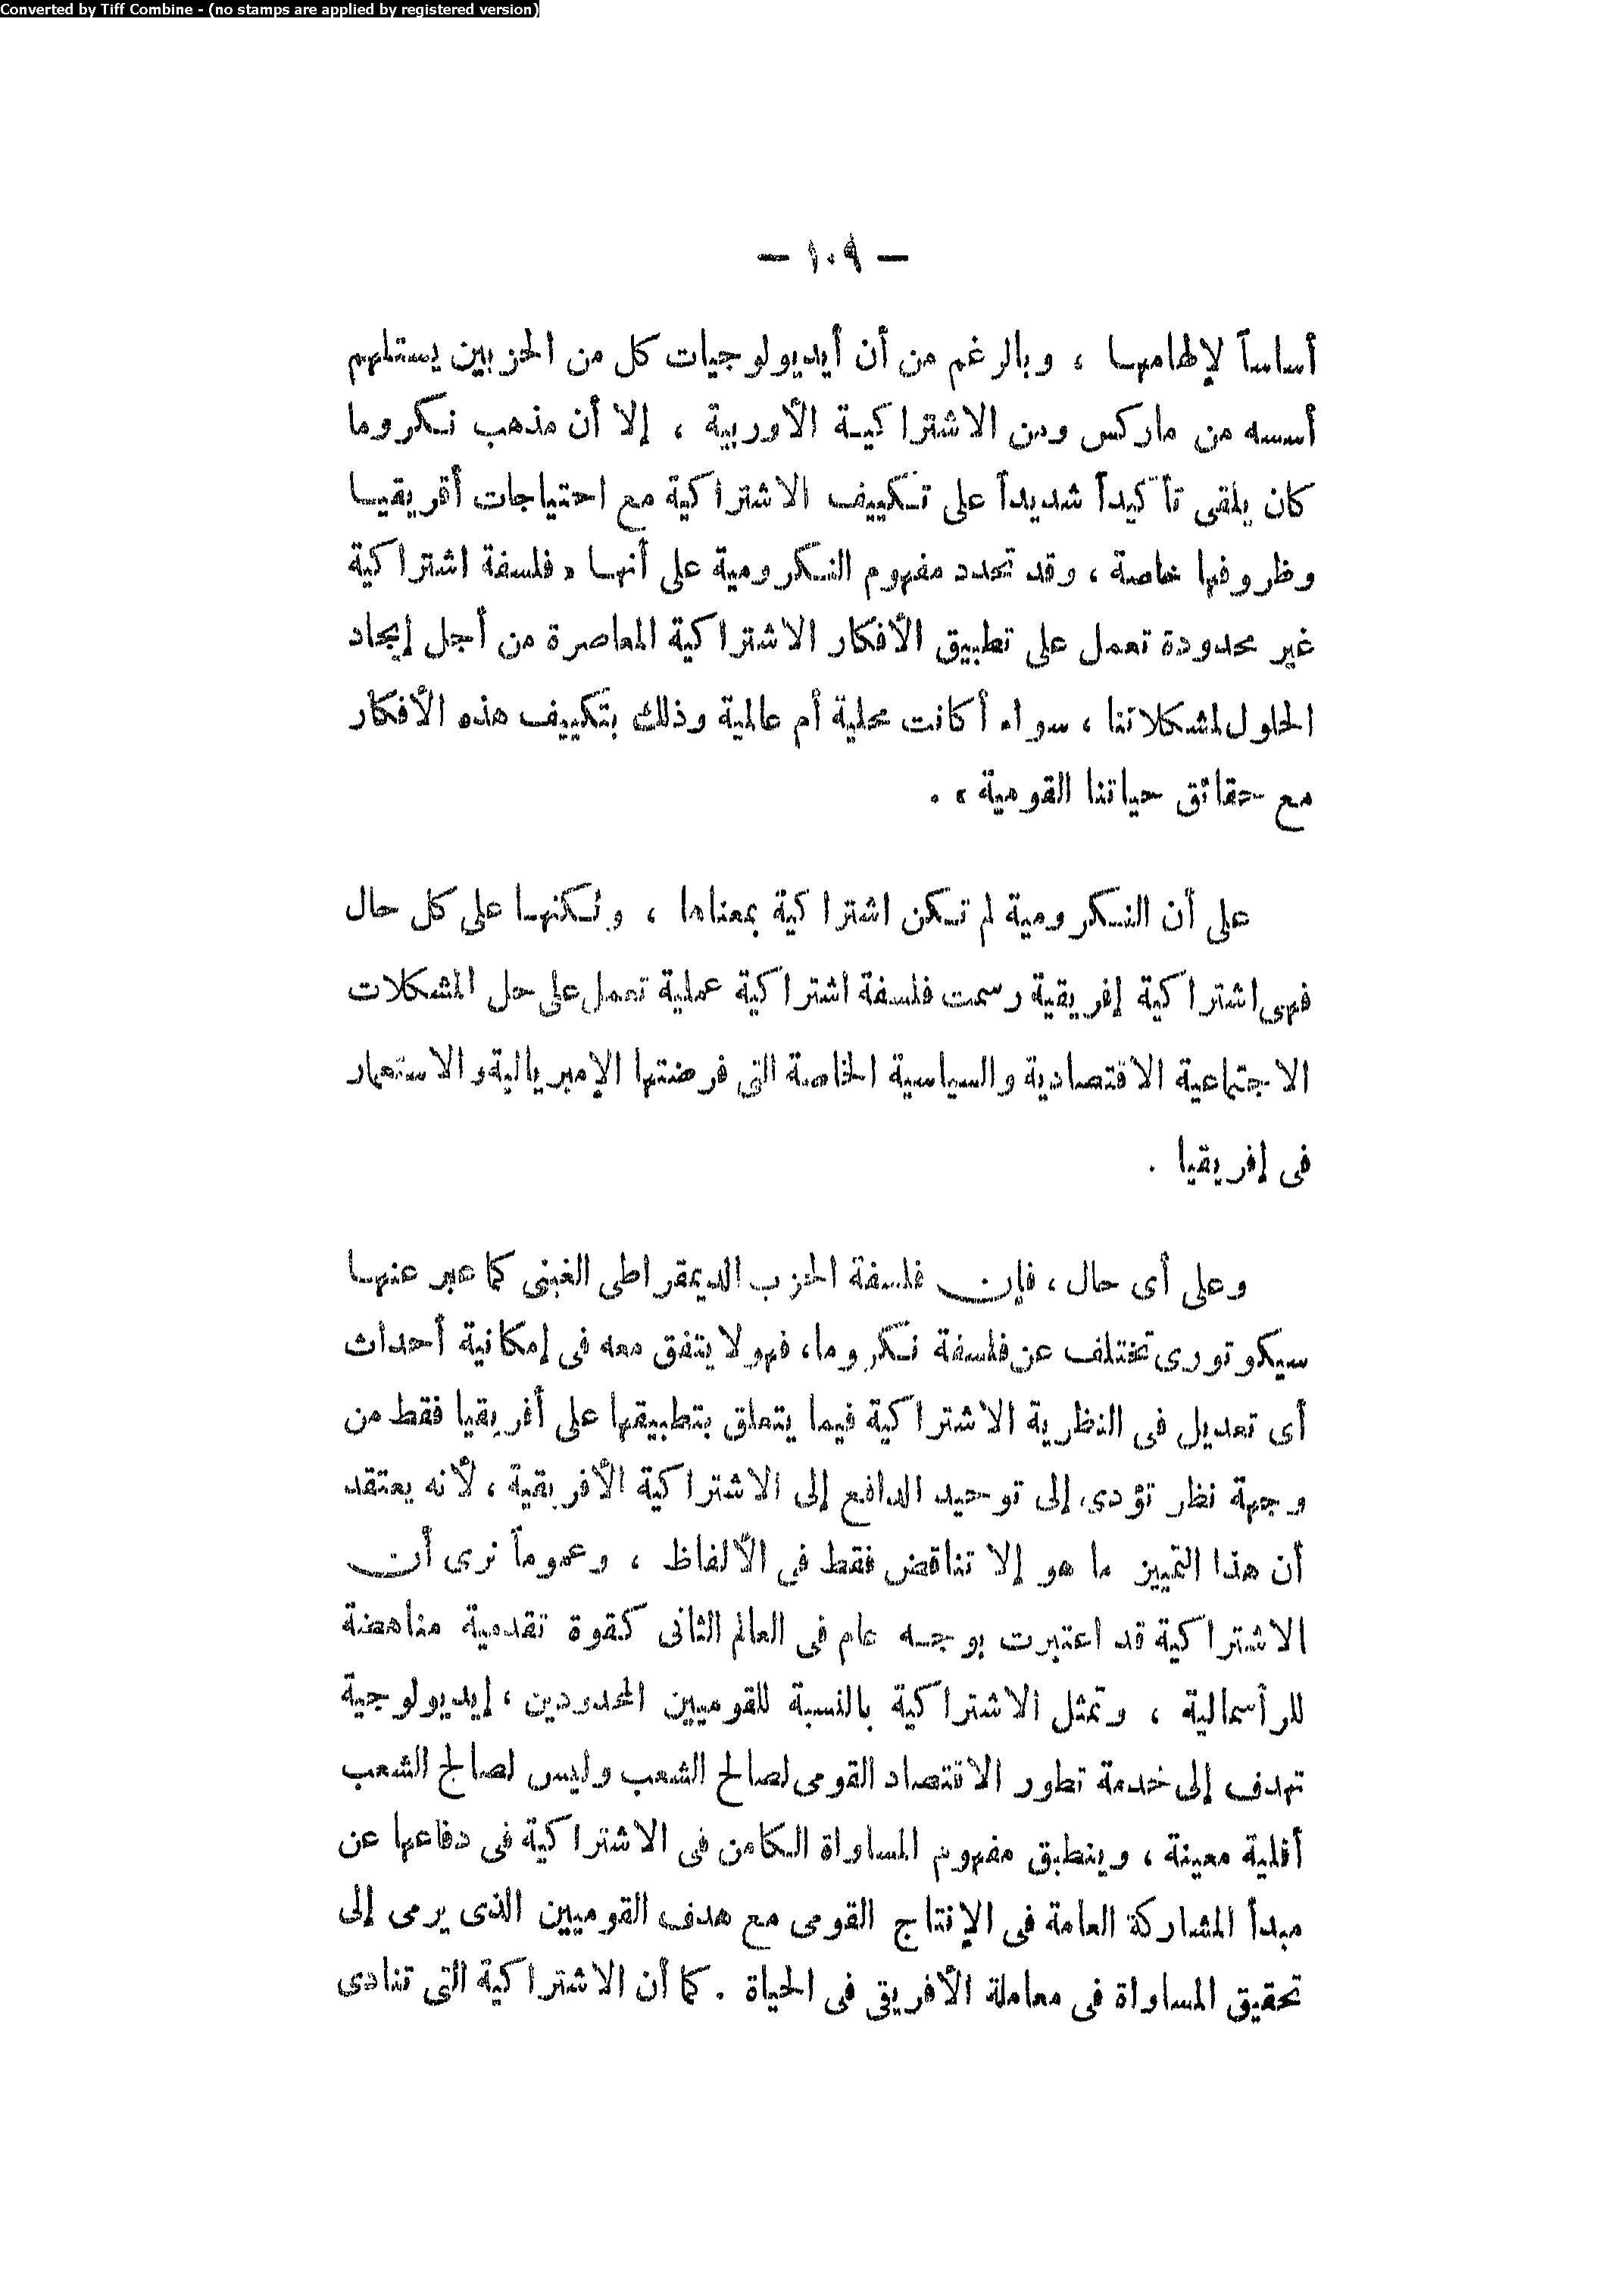 Converted by Tiff Combine - (no stamps are applied by registered version)
— ١٠٩ —
أساساً لإلهامها ، وبالرغم من أن أيديولوجيات كل من الحزبين يستلهم
أسسه من ماركس ومن الاشتراكية الأوربية ، إلا أن مذهب نكروما
كان يلقى تأكيداً شديداً على تكييف الاشتراكية مع احتياجات أقريقيا
وظروفها خاصة ، وقد تحدد مفهوم النكرومية على أنها « فلسفة اشتراكية
غير محدودة تعمل على تطبيق الأفكار الاشتراكية المعاصرة من أجل إيجاد
الحلول لمشكلاتنا ، سواء أكانت محلية أم عالمية وذلك بتكييف هذه الأفكار
مع حقائق حياتنا القومية » .
على أن النكرومية لم تكن اشتراكية بمعناها ، ولكنها على كل حال
فهى اشتراكية إفريقية رسمت فلسفة اشتراكية عملية تعمل على حل المشكلات
الاجتماعية الاقتصادية والسياسية الخاصة التى فرضتها الإمبريالية والاستعمار
فى إفريقيا .
وعلى أى حال ، فإن فلسفة الحزب الديمقراطى الغينى كما عبر عنها
سيكوتورى تختلف عن فلسفة نكروما، فهو لا يتفق معه فى إمكانية أحداث
أى تعديل فى النظرية الاشتراكية فيما يتعلق بتطبيقها على أفريقيا فقط من
وجهة نظر تؤدى إلى توحيد الدافع إلى الاشتراكية الأفريقية ، لأنه يعتقد
أن هذا التمييز ما هو إلا تناقض فقط فى الألفاظ ، وعموماً نرى أن
الاشتراكية قد اعتبرت بوجه عام فى العالم الثانى كقوة تقدمية مناهضة
للرأسمالية ، وتمثل الاشتراكية بالنسبة للقوميين المحدودين ، إيديولوجية
تهدف إلى خدمة تطور الاقتصاد القومى لصالح الشعب وليس لصالح الشعب
أقلية معينة ، وينطبق مفهوم المساواة الكامن فى الاشتراكية فى دفاعها عن
مبدأ المشاركة العامة فى الإنتاج القومى مع هدف القوميين الذى يرمى إلى
تحقيق المساواة فى معاملة الأفريقى فى الحياة . كما أن الاشتراكية التى تنادى